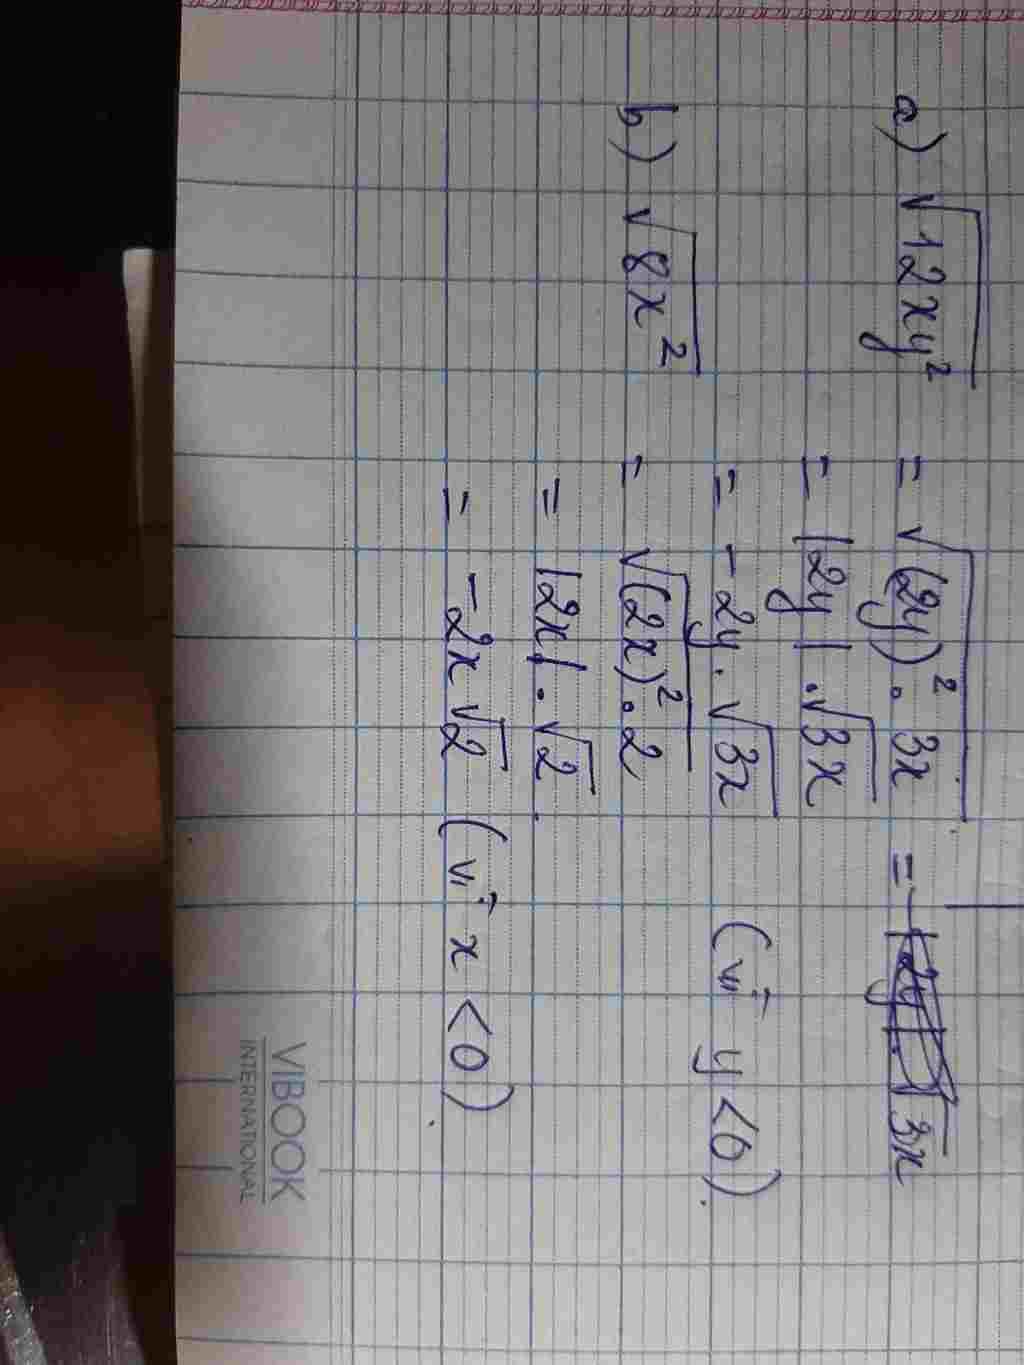 a) √12xy² = √(2y)² . 3x = 3x
= |2y| . √3x
= -2y . √3x (vì y < 0).
b) √8x² = √(2x)² . 2
= |2x| . √2
= -2x√2 (vì x < 0).
VIBOOK
INTERNATIONAL